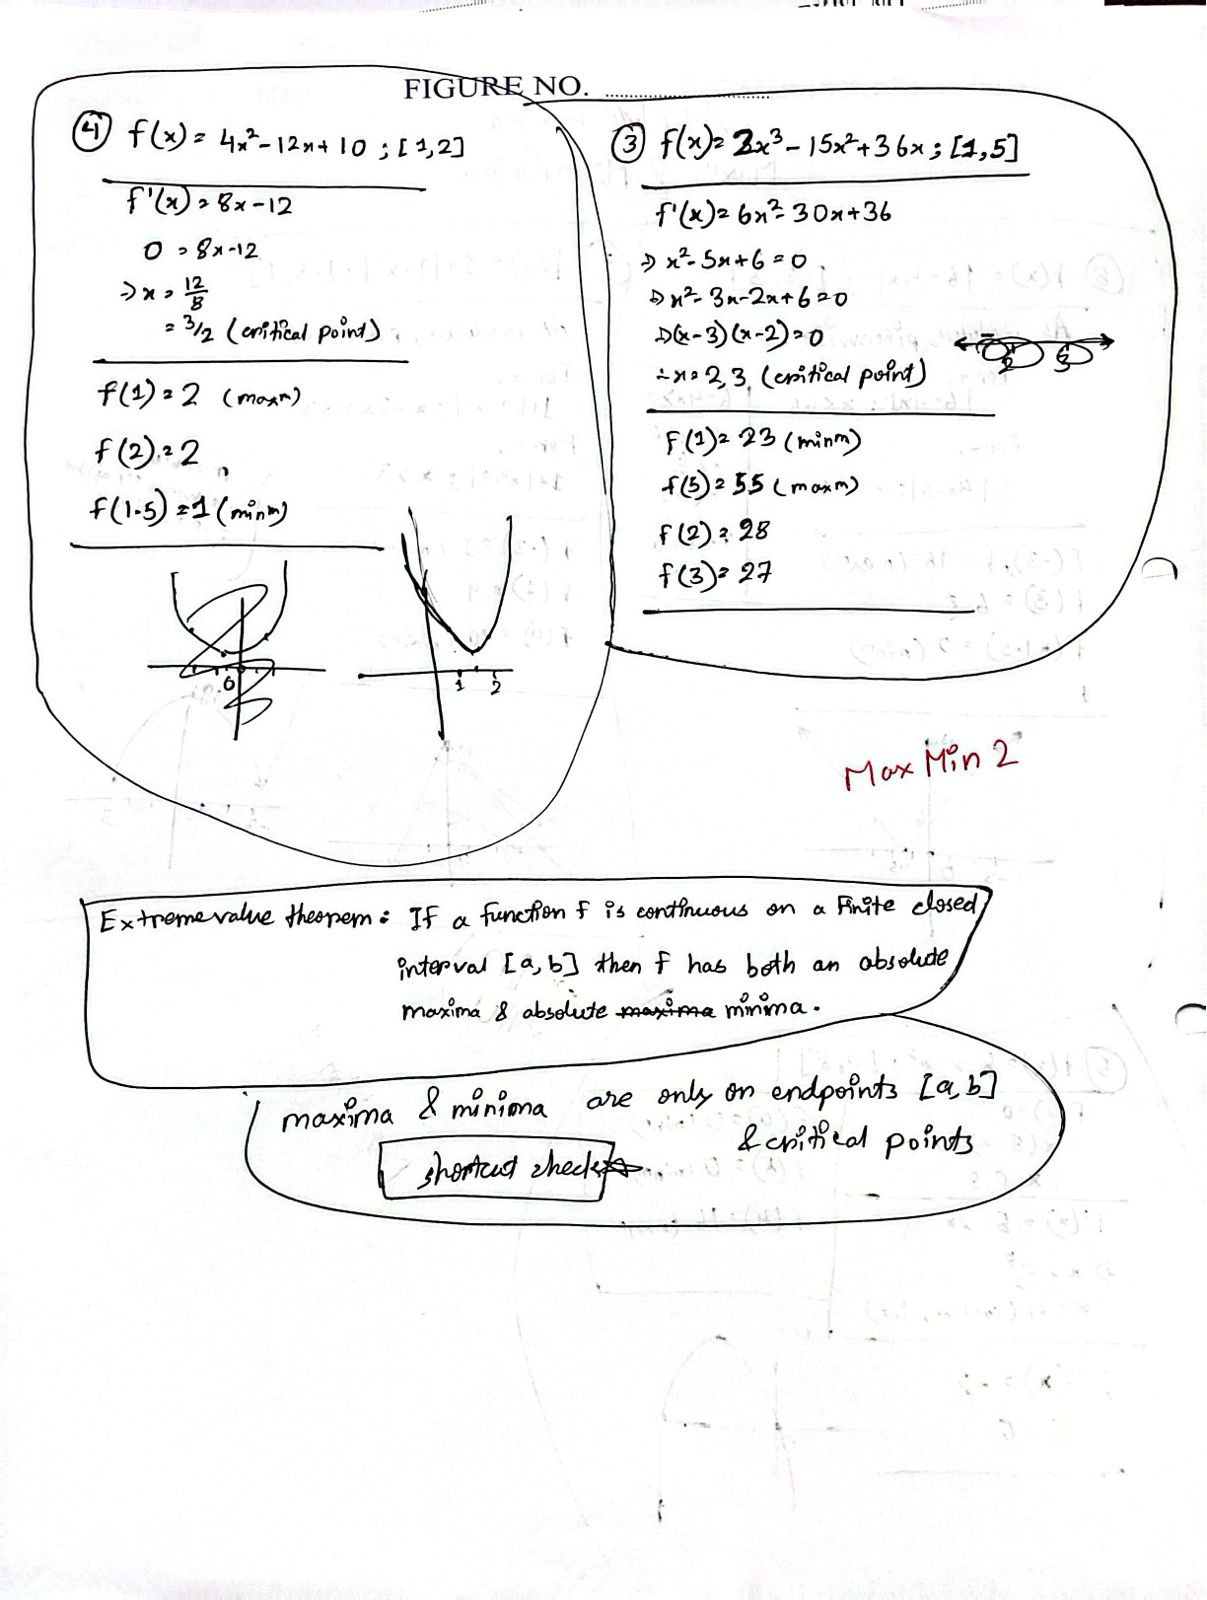 FIGURE NO. ........................
④ f(x) = 4x² - 12x + 10 ; [1,2]
f'(x) = 8x - 12
0 = 8x - 12
⇒ x = 12/8
= 3/2 (critical point)
f(1) = 2 (maxm)
f(2) = 2
f(1.5) = 1 (minm)
0
1 2
③ f(x) = 2x³ - 15x² + 36x ; [1,5]
f'(x) = 6x² - 30x + 36
⇒ x² - 5x + 6 = 0
⇒ x² - 3x - 2x + 6 = 0
⇒ (x-3)(x-2) = 0
∴ x = 2, 3 (critical point)
2 3
f(1) = 23 (minm)
f(5) = 55 (maxm)
f(2) = 28
f(3) = 27
Max Min 2
Extreme value theorem : If a function f is continuous on a finite closed
interval [a,b] then f has both an absolute
maxima & absolute maxima minima.
maxima & minima are only on endpoints [a,b]
& critical points
shortcut check